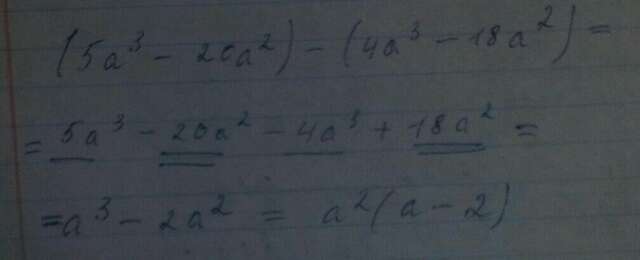 (5a³ - 20a²) - (4a³ - 18a²) =
= 5a³ - 20a² - 4a³ + 18a² =
= a³ - 2a² = a²(a - 2)